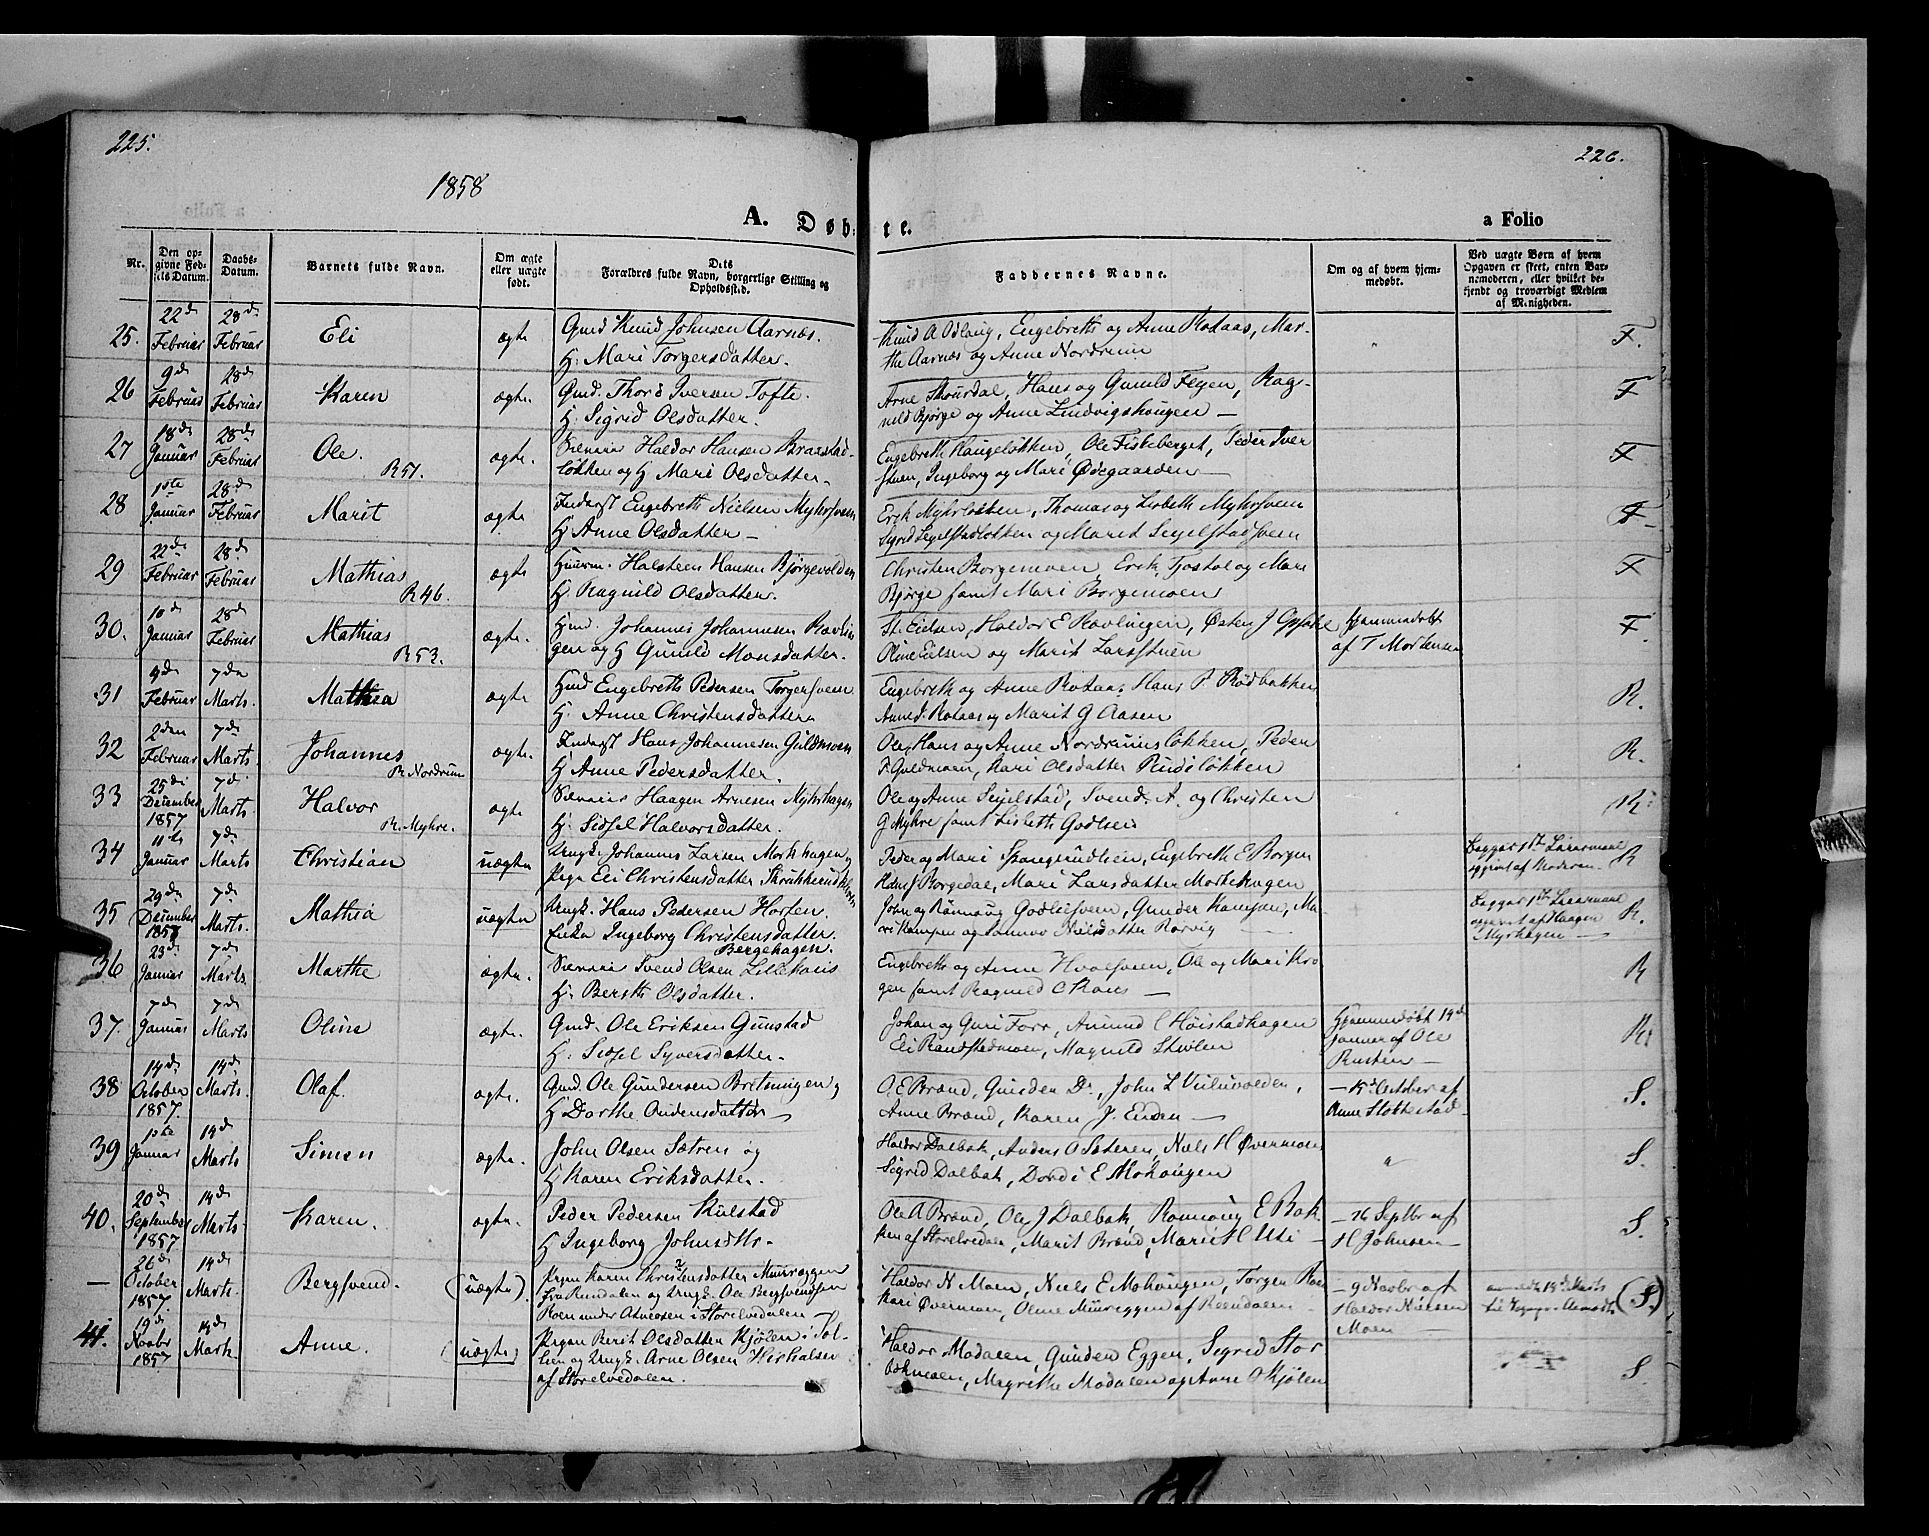 225.
226.
1858
A. Døb-
te.
a Folio
Nr.
Den op-
givne Fød-
sels Datum.
Daabs-
Datum.
Barnets fulde Navn.
Om ægte
eller uægte
født.
Dets
Forældres fulde Navn, borgerlige Stilling og
Opholdssted.
Faddernes Navne.
Om og af hvem hjem-
medøbt.
Ved uægte Børn af hvem
Opgaven er skeet, enten Bar-
nemoderen, eller hvilket be-
kjendt og troværdigt Medlem
af Menigheden.
25. 22de Februar 28de Februar Eli ægte Gmd Knud Johnsen Aarnæs.
H. Mari Torgersdatter.
Knud A Odlaug, Engebreth og Anne Rotaas, Mar-
the Aarnæs og Anne Nordrum
F.
26 9de Februar 28de Februar Karen ægte. Gmd. Thord Iversen Tofte.
H. Sigrid Olsdatter.
Arne Skourdal, Hans og Gunild Fegen, Rag-
nild Bjørge og Anne Lindvigshaugen —
F
27 18de Januar 28de Februar Ole. R 57. ægte. Haldor Hansen
løkken og H Mari Olsdatter.
Engebreth Haugeløkken, Ole Fiskeberget, Peder Iver
stuen, Ingeborg og Mari Ødegaarden
F
28 1ste Januar 28de Februar Marit ægte Inderst Engebreth Nielsen Myhrsveen
H Anne Olsdatter —
Erik Myhrløkken, Thomas og Lisbeth Myhrsveen
Sigrid Segelstadløkken og Marit Segelstadsveen
F
29 22de Februar 28de Februar Mathias R 46. ægte Huusm. Halsteen Hansen Bjørgevolden
H. Ragnild Olsdatter.
Christen Borgemoen Erik, Tjostol og Mari
Bjørge samt Mari Borgemoen
F
30. 10de Januar 28de Februar Mathias R 53. ægte. Hmd. Johannes Johannesen Rævlin
gen og H Gunild Monsdatter.
St. Eielsen, Haldor E Rævlingen, Østen J
Oline Eielsen og Marit Larsstuen
Hjemmedøbt
af T Mortensen
F.
31 9de Februar 7de Marts. Mathea ægte Hmd Engebreth Pedersen Torgersveen
H. Anne Christensdatter
Engebreth og Anne Rotaas, Hans P. Rødbakken
Anne Rotaas og Marit G Aasen
R.
32 2den Februar 7de Marts. Johannes R. Nordrum ægte. Inderst Hans Johannesen Guldmoen
H Anne Pedersdatter.
Ole, Hans og Anne Nordrumsløkken, Peder
P. Guldmoen, Kari Olsdatter Rudsløkken
R.
33 25de December 1857 7de Marts. Halvor R. Myhre. ægte Haagen Arnesen Myhrhagen
H. Sidsel Halvorsdatter.
Ole og Anne Segelstad, Svend A. og Christen
G Myhre samt Lisbeth Godlien
R.
34 11te Januar 7de Marts Christian uægte Ungk. Johannes Larsen Morkhagen,
Pigen Eli Christensdatter
Peder og Mari Spangrudlien, Engebreth E Borgen
Hans Borgedal, Mari Larsdatter Morkhagen
Begges 1ste Leiermaal
opgivet af Moderen
R
35 29de December 1857 7de Marts. Mathea uægte Ungk. Hans Pedersen Horsen.
Enken Ingeborg Christensdatter.
Bergehagen.
John og Rønnaug Godliesveen, Gunder Kampen, Ma-
ri Kampen og Nielsdatter Rørvig
Begges 1ste Leiermaal
opgivet af Haagen
Myrhagen —
R.
36 23de Januar 7de Marts. Marthe ægte. Svend Olsen
H. Berthe Olsdatter.
Engebreth og Anne Hvalsveen, Ole og Mari Kro
gen samt Ragnild C —
R
37. 7de Januar 7de Marts Oline ægte. Gmd. Ole Eriksen Gunstad
H. Sidsel Syversdatter.
Johan og Guri Forr, Amund C Høistadhagen
Eli Randstadmoen, Magnild Skolen
Hjemmedøbt 14de
Januar af Ole
Rusten —
R.
38 14de October 1857. 14de Marts. Olaf. ægte. Gmd. Ole Gundersen Bretningen,
H Dorthe Andersdatter
O. E Brænd, Gunder Do, John L
Anne Brænd, Karen J. Enden —
— 15de October af
Anne Slottestad
S.
39 1ste Januar 14de Marts Simen ægte. John Olsen Sætren og
H Karen Eriksdatter.
Haldor Dalbak, Anders O Sæteren, Niels H Øvermoen
Sigrid Dalbak, Dordi E Mohaugen
"
S.
40. 20de September 1857 14de Marts. Karen. ægte. Peder Pedersen Kulstad
H Ingeborg Johnsdtr.
Ole A Brænd, Ole J Dalbak, Rønnoug E Bak-
ken af Storelvedalen, Marit Brænd, Mari H Uti —
— 26 Septbr af
H Johnsen
S.
— 26de October 1857. 14de Marts. Bergsvend. (uægte). Pigen Karen Christensdatter
fra Rendalen og Ungk. Ole Bergsvendsen
Moen under i Storelvedalen
Haldor N. Moen, Niels E Mohaugen, Torger
Kari Øvermoen, Oline af Rendalen
— 9 Novbr af
Haldor Nielsen
Moen
(S.)
41. 19de Novbr 1857 14de Marts. Anne. (uægte) Pigen Berit Olsdatter Kjølen i Sol-
lien og Ungk. Arne Olsen
af Storelvedalen.
Haldor Modalen, Gunder Eggen, Sigrid Stor
bækmoen, Magrethe Modalen og Anne O Kjølen
S.